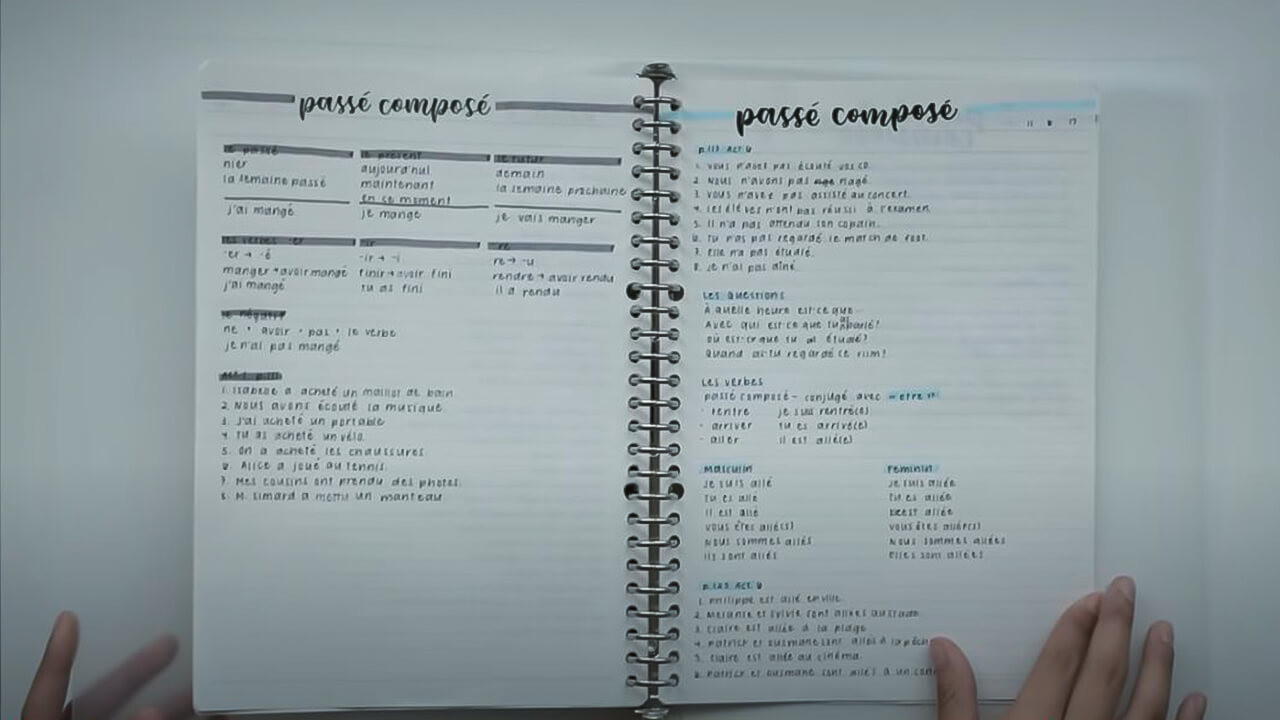 passé composé
le passé le présent le futur
hier aujourd'hui demain
la semaine passé maintenant la semaine prochaine
en ce moment
j'ai mangé je mange je vais manger
les verbes -er -ir -re
-er → -é -ir → -i re → -u
manger → avoir mangé finir → avoir fini rendre → avoir rendu
j'ai mangé tu as fini il a rendu
le négatif
ne + avoir + pas + le verbe
je n'ai pas mangé
1. Isabelle a acheté un maillot de bain.
2. Nous avons écouté la musique.
3. J'ai acheté un portable
4. Tu as acheté un vélo.
5. On a acheté les chaussures
6. Alice a joué au tennis.
7. Mes cousins ont prendu des photos.
8. M. Simard a un manteau
passé composé
11 8 17
p.117 Act 6
1. Vous n'avez pas écouté vos CD.
2. Nous n'avons pas nagé.
3. Vous n'avez pas assisté au concert.
4. Les élèves n'ont pas réussi à l'examen.
5. Il n'a pas attendu son copain.
6. Tu n'as pas regardé le match de foot.
7. Elle n'a pas étudié.
8. Je n'ai pas dîné.
Les Questions
À quelle heure est-ce que
Avec qui est-ce que tu as parlé?
où est-ce que tu as étudié?
Quand as-tu regardé ce film?
Les verbes
passé composé - conjugé avec « etre »
- rentre je suis rentré(e)
- arriver tu es arrivé(e)
- aller il est allé(e)
Masculin Feminin
Je suis allé Je suis allée
Tu es allé Tu es allée
Il est allé est allée
Vous êtes allé(s) Vous êtes allée(s)
Nous sommes allés Nous sommes allées
Ils sont allés Elles sont allées
p.123 Act 6
1. Philippe est allé en ville.
2. Mélanie et Sylvie sont allées au stade.
3. Claire est allée à la plage
4. Patrick et Ousmane sont allés à la pêche
5. Claire est allée au cinéma.
6. Patrick et Ousmane sont allés à un